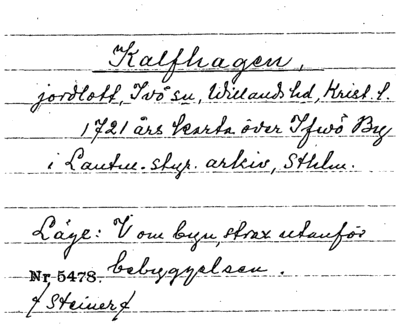 Kalfhagen,
jordlott, Ivö sn, Willands hd, Krist. l.
1721 års karta över Ifwö By
i Lantm. styr. arkiv, Sthlm.
Läge: V om byn, strax utanför
bebyggelsen.
Nr 5478.
/ Steiner /